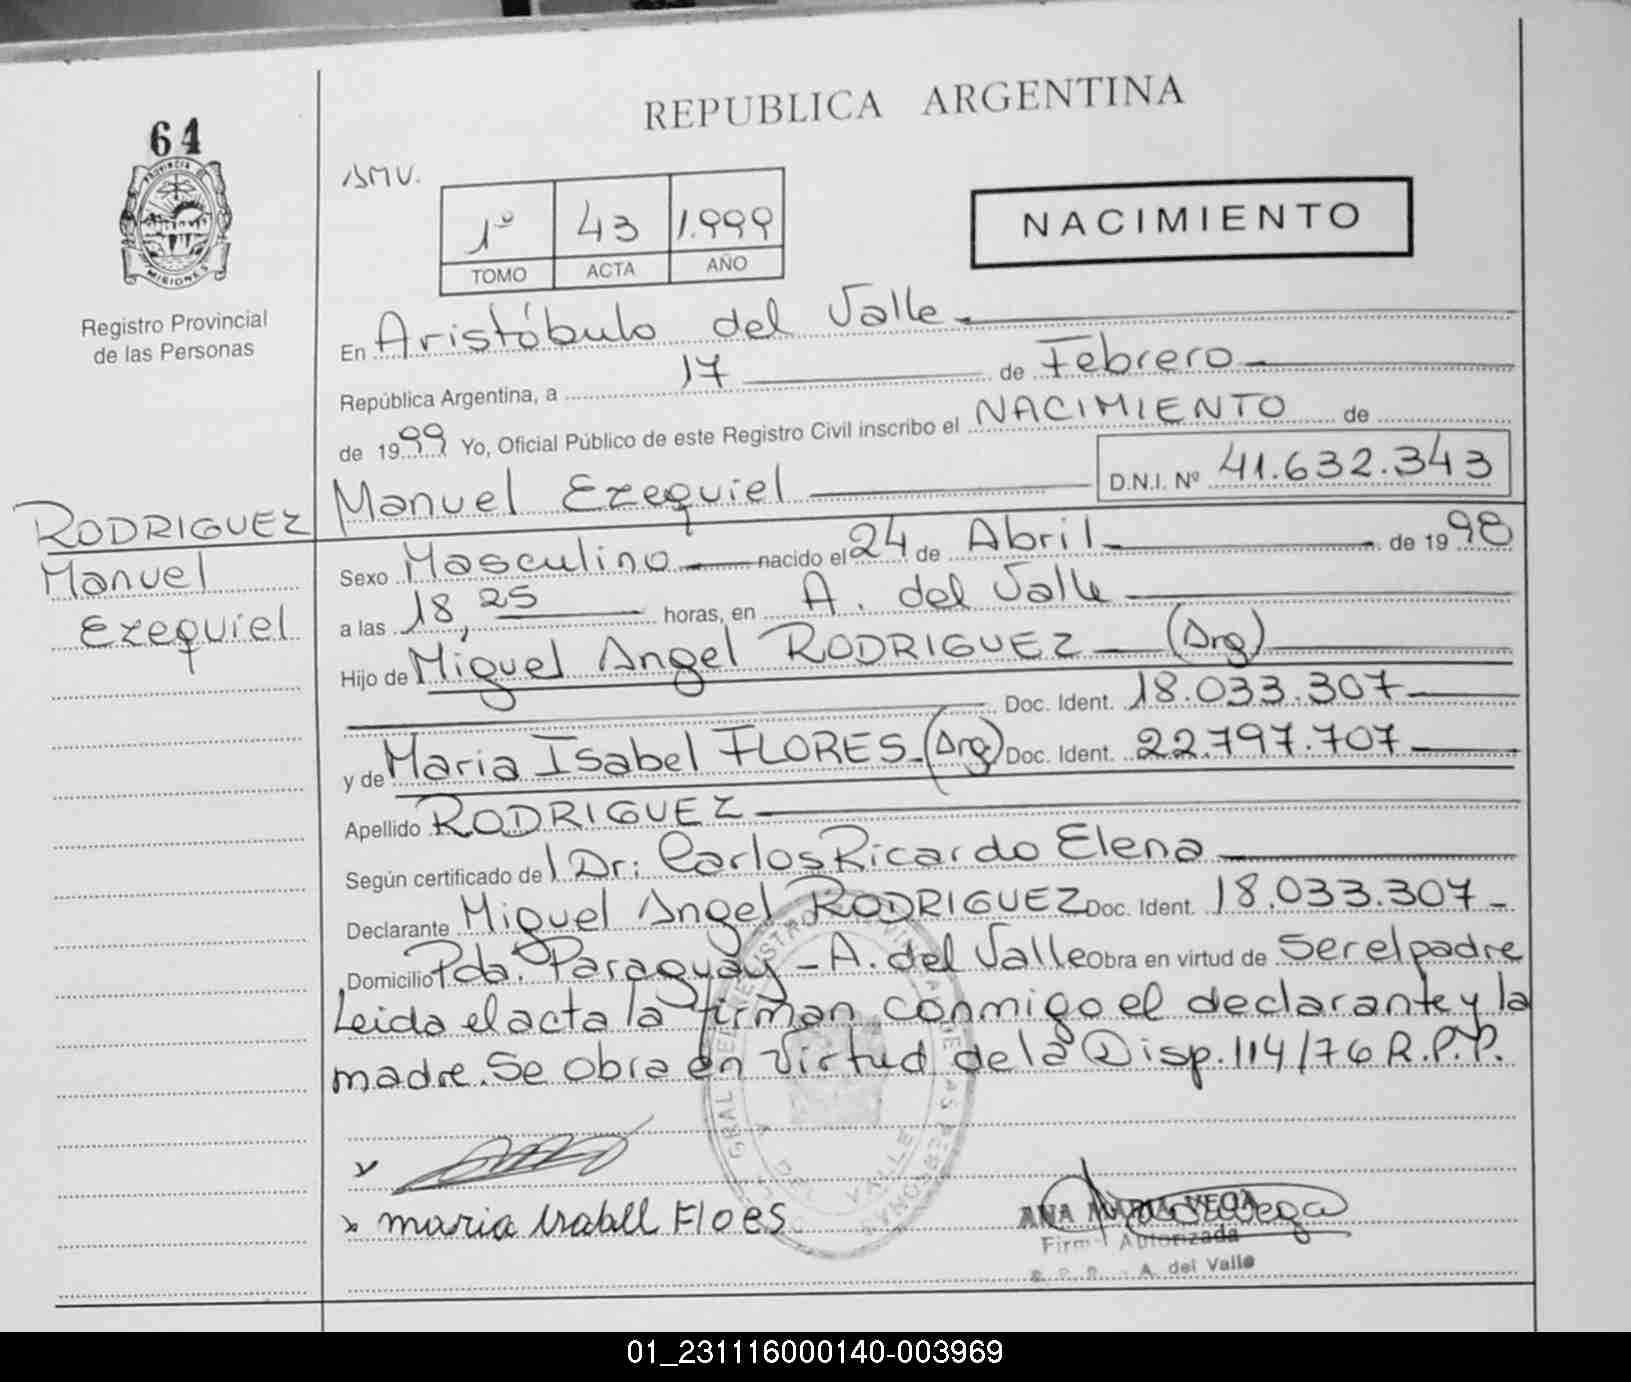 REPUBLICA ARGENTINA
64
PROVINCIA DE
MISIONES
Registro Provincial
de las Personas
SMV.
1º 43 1.999
TOMO ACTA AÑO
NACIMIENTO
En Aristóbulo del Valle
República Argentina, a 17 de Febrero
de 1999 Yo, Oficial Público de este Registro Civil inscribo el NACIMIENTO de
Manuel Ezequiel D.N.I. Nº 41.632.343
RODRIGUEZ
Manuel
Ezequiel
Sexo Masculino nacido el 24 de Abril de 1998
a las 18,25 horas, en A. del Valle
Hijo de Miguel Angel RODRIGUEZ (Arg)
Doc. Ident. 18.033.307
y de Maria Isabel FLORES (Arg) Doc. Ident. 22.797.707
Apellido RODRIGUEZ
Según certificado de l Dr: Carlos Ricardo Elena
Declarante Miguel Angel RODRIGUEZ Doc. Ident. 18.033.307
Domicilio Pda. Paraguay - A. del Valle Obra en virtud de ser el padre
Leida el acta la firman conmigo el declarante y la
madre. Se obra en virtud de la Disp. 114/76 R.P.P.
maria Isabel Floes
ANA MARIA VEGA
Firma Autorizada
A. del Valle
01_231116000140-003969